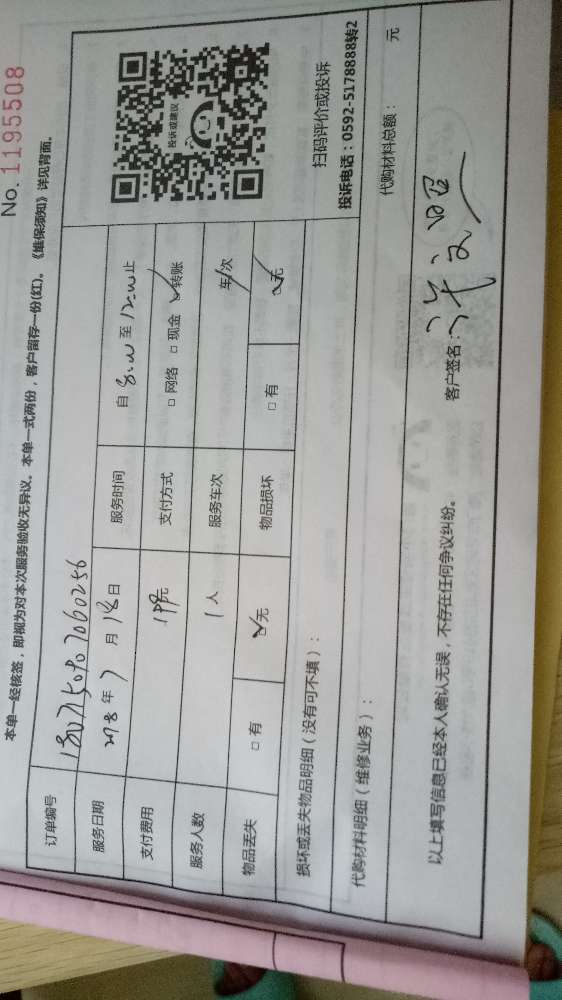 No. 1195508
本单一经核签，即视为对本次服务验收无异议。本单一式两份，客户留存一份(红)。《维保须知》详见背面。
订单编号
服务日期 2018 年 7 月 18 日 服务时间 自 8:00 至 12:00 止
支付费用 199元 支付方式 □ 网络 □ 现金 ☑ 转账
服务人数 1 人 服务车次 车/次
物品丢失 □ 有 ☑ 无 物品损坏 □ 有 ☑ 无
投诉或建议
扫码评价或投诉
投诉电话：0592-5178888转2
损坏或丢失物品明细（没有可不填）：
代购材料明细（维修业务）：
代购材料总额： 元
以上填写信息已经本人确认无误，不存在任何争议纠纷。 客户签名：